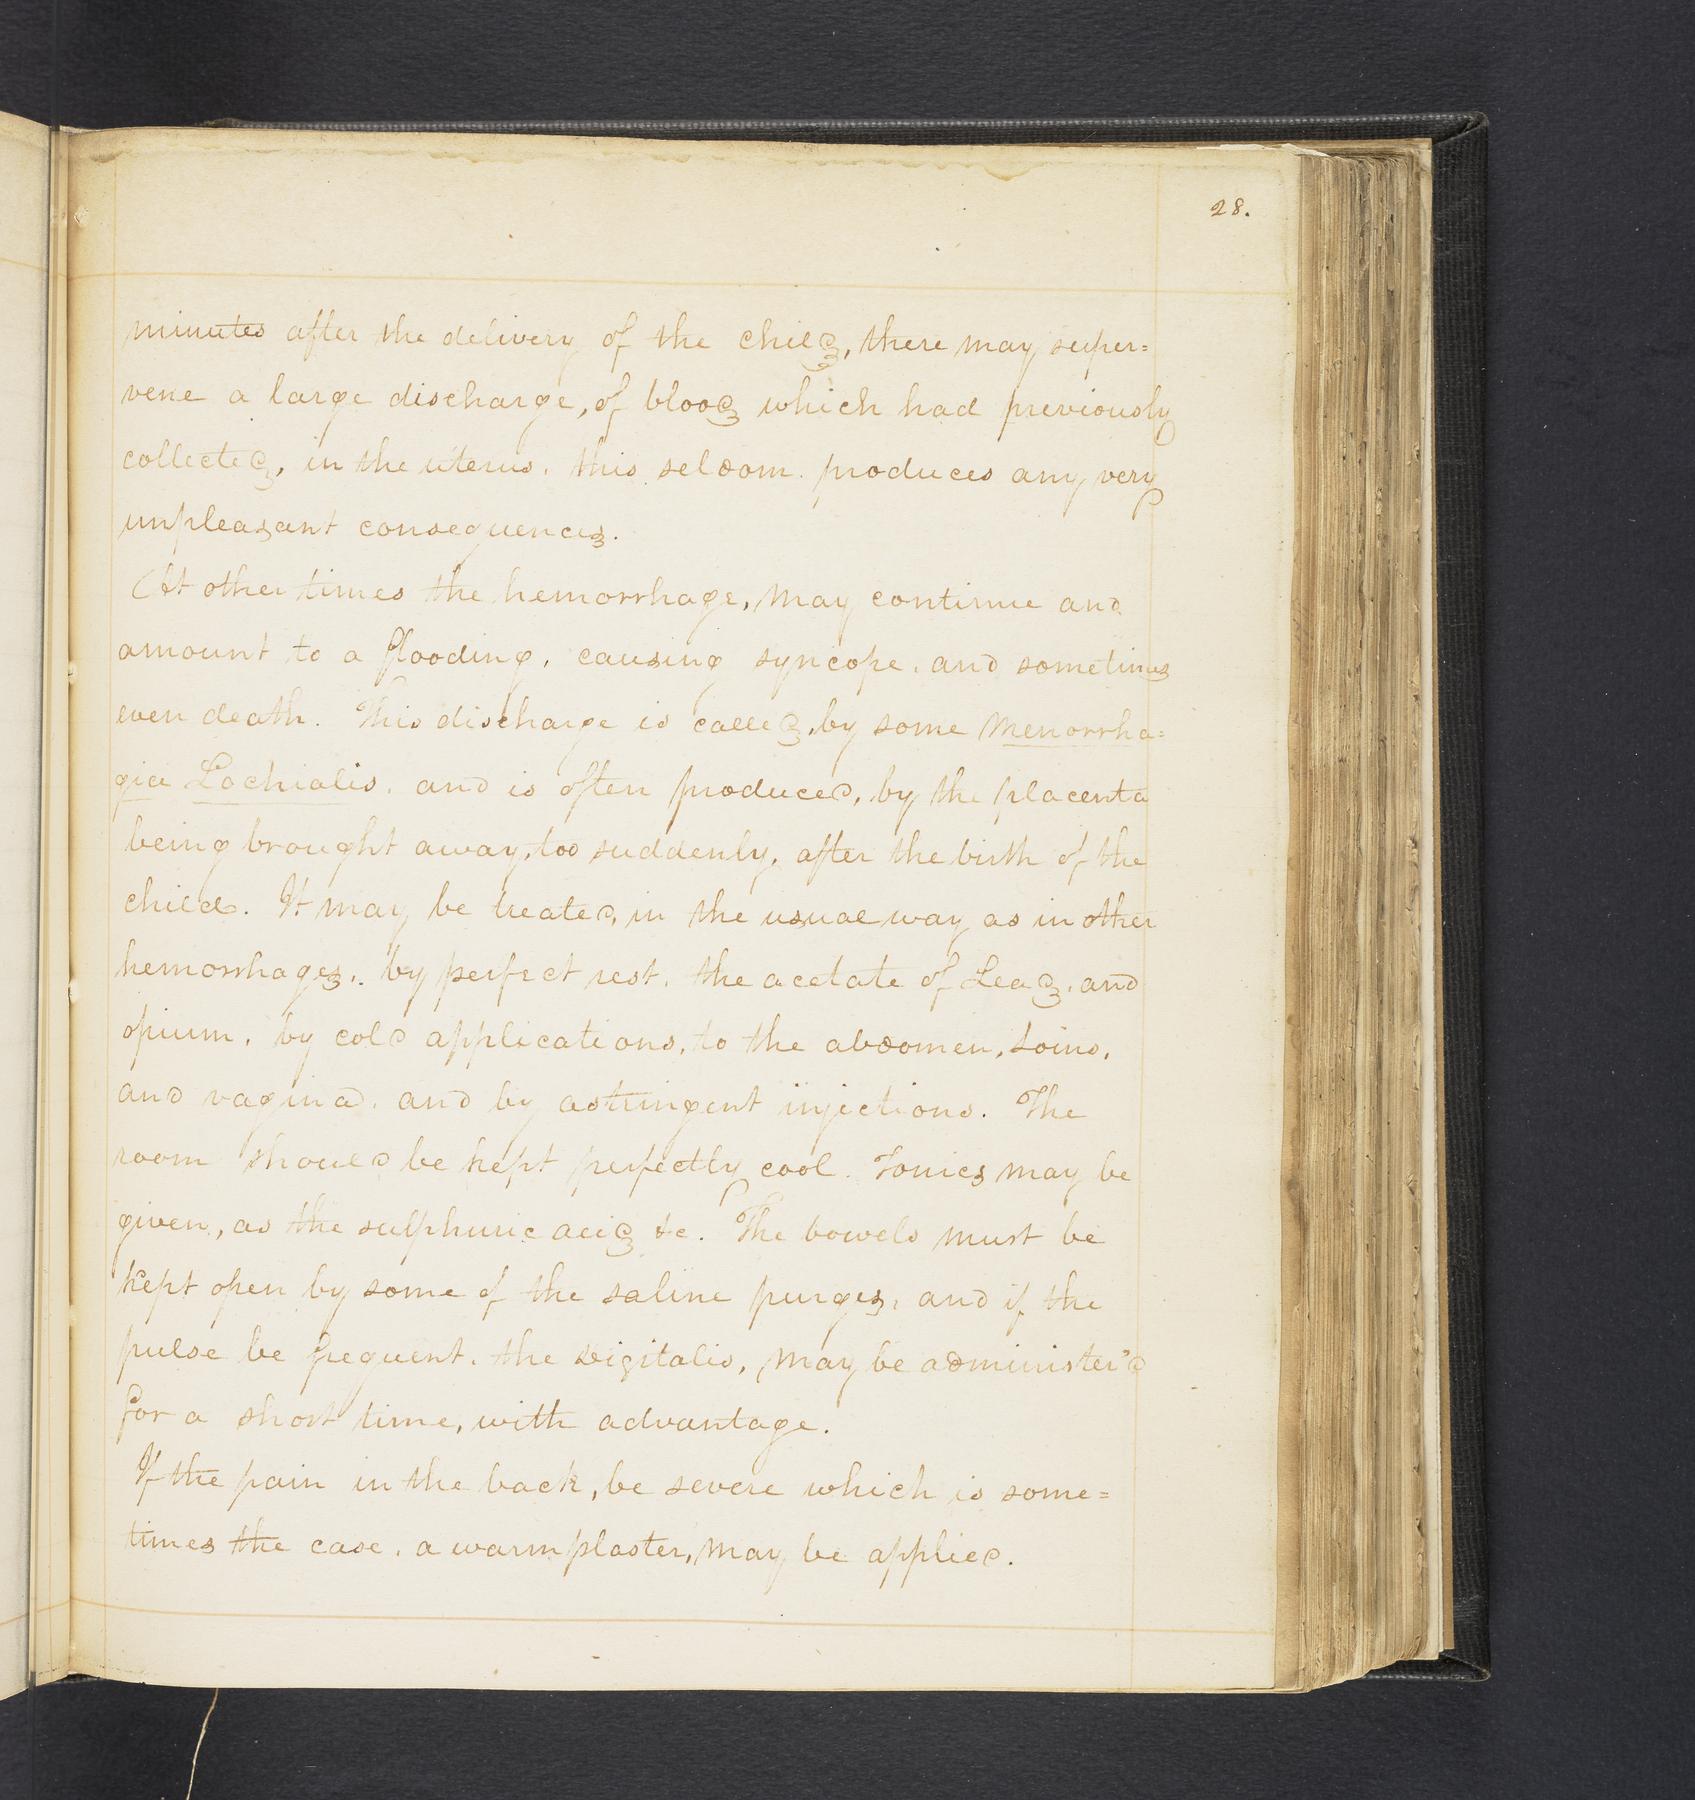 28.
minutes after the delivery of the child, there may super=
vene a large discharge, of blood which had previously
collected, in the uterus. this seldom produces any very
unpleasant consequences.
At other times the hemorrhage, may continue and
amount to a flooding, causing syncope, and sometimes
even death. This discharge is called, by some Menorrha=
gia Lochialis, and is often produced, by the placenta
being brought away, too suddenly, after the birth of the
child. It may be treated, in the usual way as in other
hemorrhages, by perfect rest, the acetate of Lead, and
opium, by cold applications, to the abdomen, Loins,
and vagina, and by astringent injections. The
room should be kept perfectly cool. Tonics may be
given, as the sulphuric acid &c. The bowels must be
kept open by some of the saline purges, and if the
pulse be frequent, the digitalis, may be administer'd
for a short time, with advantage.
If the pain in the back, be severe which is some=
times the case, a warm plaster, may be applied.